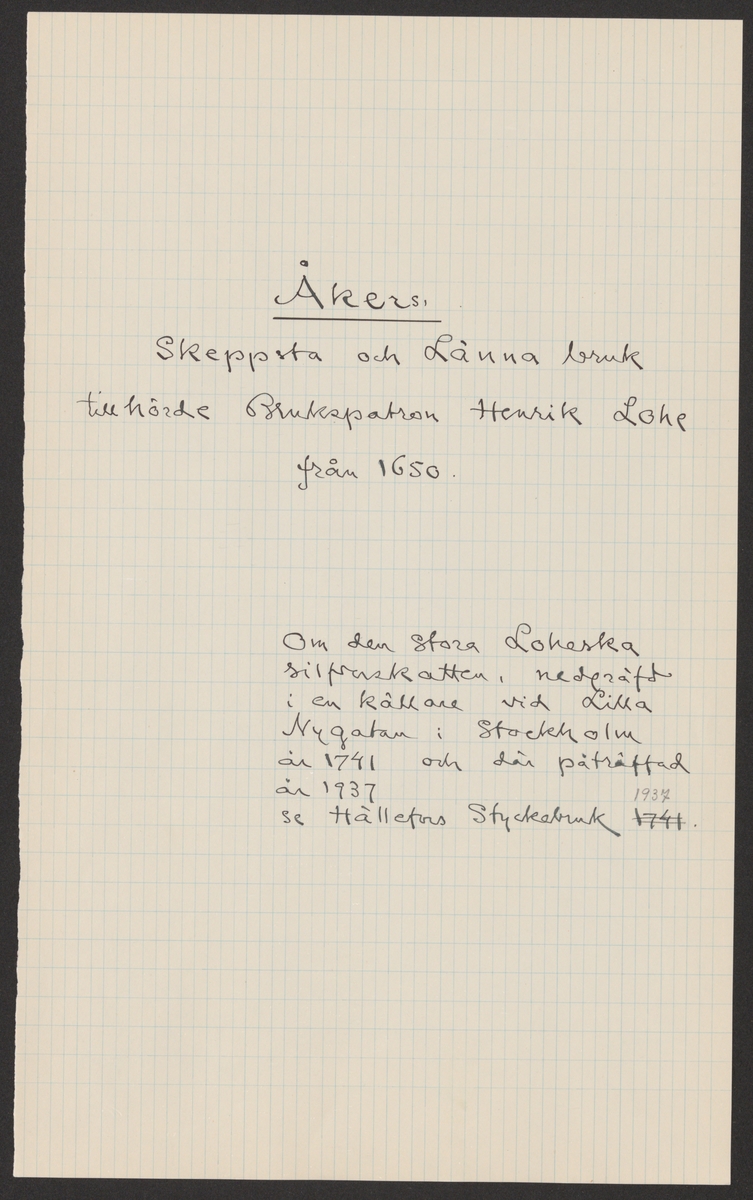 Åkers,
Skeppsta och Länna bruk
tillhörde Brukspatron Henrik Lohe
från 1650.
Om den stora Loheska
silfverskatten, nedgräfd
i en källare vid Lilla
Nygatan i Stockholm
år 1741 och där påträffad
år 1937
1937
se Hällefors Styckebruk 1741.